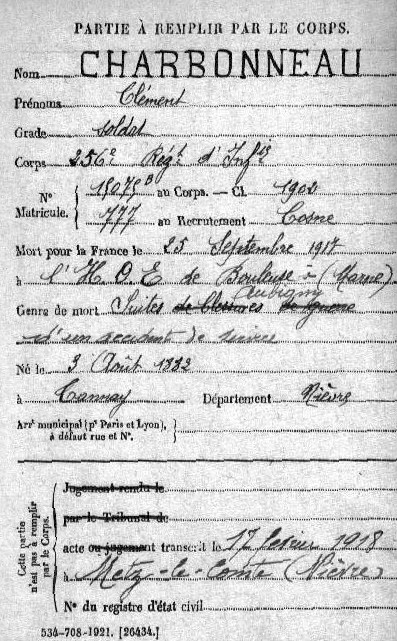 PARTIE À REMPLIR PAR LE CORPS.
Nom CHARBONNEAU
Prénoms Clément
Grade soldat
Corps 256e Régt d'Infie
N° Matricule. 15075 B au Corps. — Cl. 1902
777 au Recrutement Cosne
Mort pour la France le 25 Septembre 1917
à l'H.O.E de Bouleuse (Marne)
Aubigny
Genre de mort Suites de blessures
d'un accident de
Né le 3 Août 1882
à Tannay Département Nièvre
Arrt municipal (pr Paris et Lyon), à défaut rue et N°.
Cette partie n'est pas à remplir par le Corps.
Jugement rendu le
par le Tribunal de
acte ou jugement transcrit le 17 février 1918
à Metz-le-Comte (Nièvre)
N° du registre d'état civil
534-708-1921. [26434.]